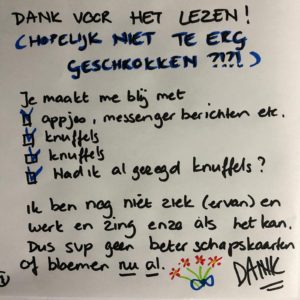 DANK VOOR HET LEZEN!
(HOPELIJK NIET TE ERG
GESCHROKKEN ?!?!)
Je maakt me blij met
☑ appjes, messenger berichten etc.
☑ knuffels
☑ knuffels
☑ Had ik al gezegd knuffels?
Ik ben nog niet ziek (ervan) en
werk en zing enzo als het kan.
Dus svp geen beterschapskaarten
of bloemen nu al.
DANK